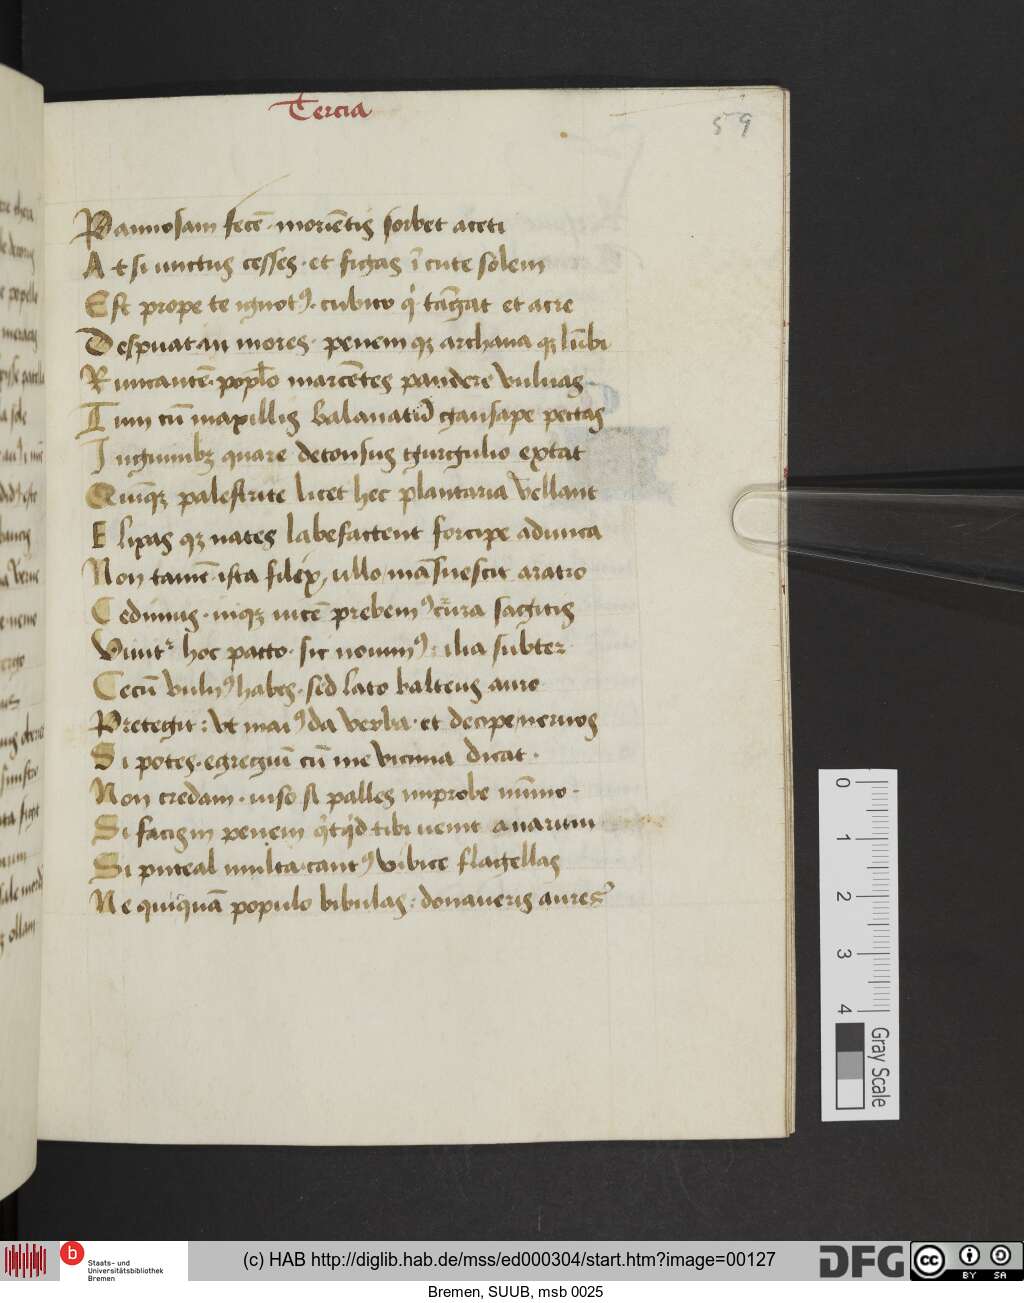 Tercia
59
Pannosam fecē · moriētis sorbet aceti
At si unctus cesses · et figas ī cute solem
Est prope te ignotꝰ · cubito qͥ tāgat et acre
Despuat in mores · penem qꝫ archana qꝫ lūbi
Runcantē · popl̄o marcētes pandere vuluas
Tum cū maxillis balanatū gausape pectas
Inguinibꝫ quare detonsus gurgulio extat
Quīqꝫ palestrite licet hec plantaria vellant
Elixas qꝫ nates labefactent forcipe adunca
Non tamē ista filex ullo māsuescit aratro
Cedimus · inqꝫ uicē prebemꝰ crura sagitis
Viuitᷣ hoc pacto · sic nouimꝰ : ilia subter
Cecū vulnꝰ habes · sed lato balteus auro
Pretegit : vt maiꝰ da verba · et decipe neruos
Si potes · egregiū cū me vicinia dicat ·
Non credam · uiso si palles improbe nūmo ·
Si facis in penem qͥtqͥd tibi uenit amarum
Si puteal multa cautꝰ vibice flagellas
Ne quiquā populo bibulas : donaueris aures
0 1 2 3 4
Gray Scale
b Staats- und
Universitätsbibliothek
Bremen
(c) HAB http://diglib.hab.de/mss/ed000304/start.htm?image=00127
DFG
cc BY SA
Bremen, SUUB, msb 0025